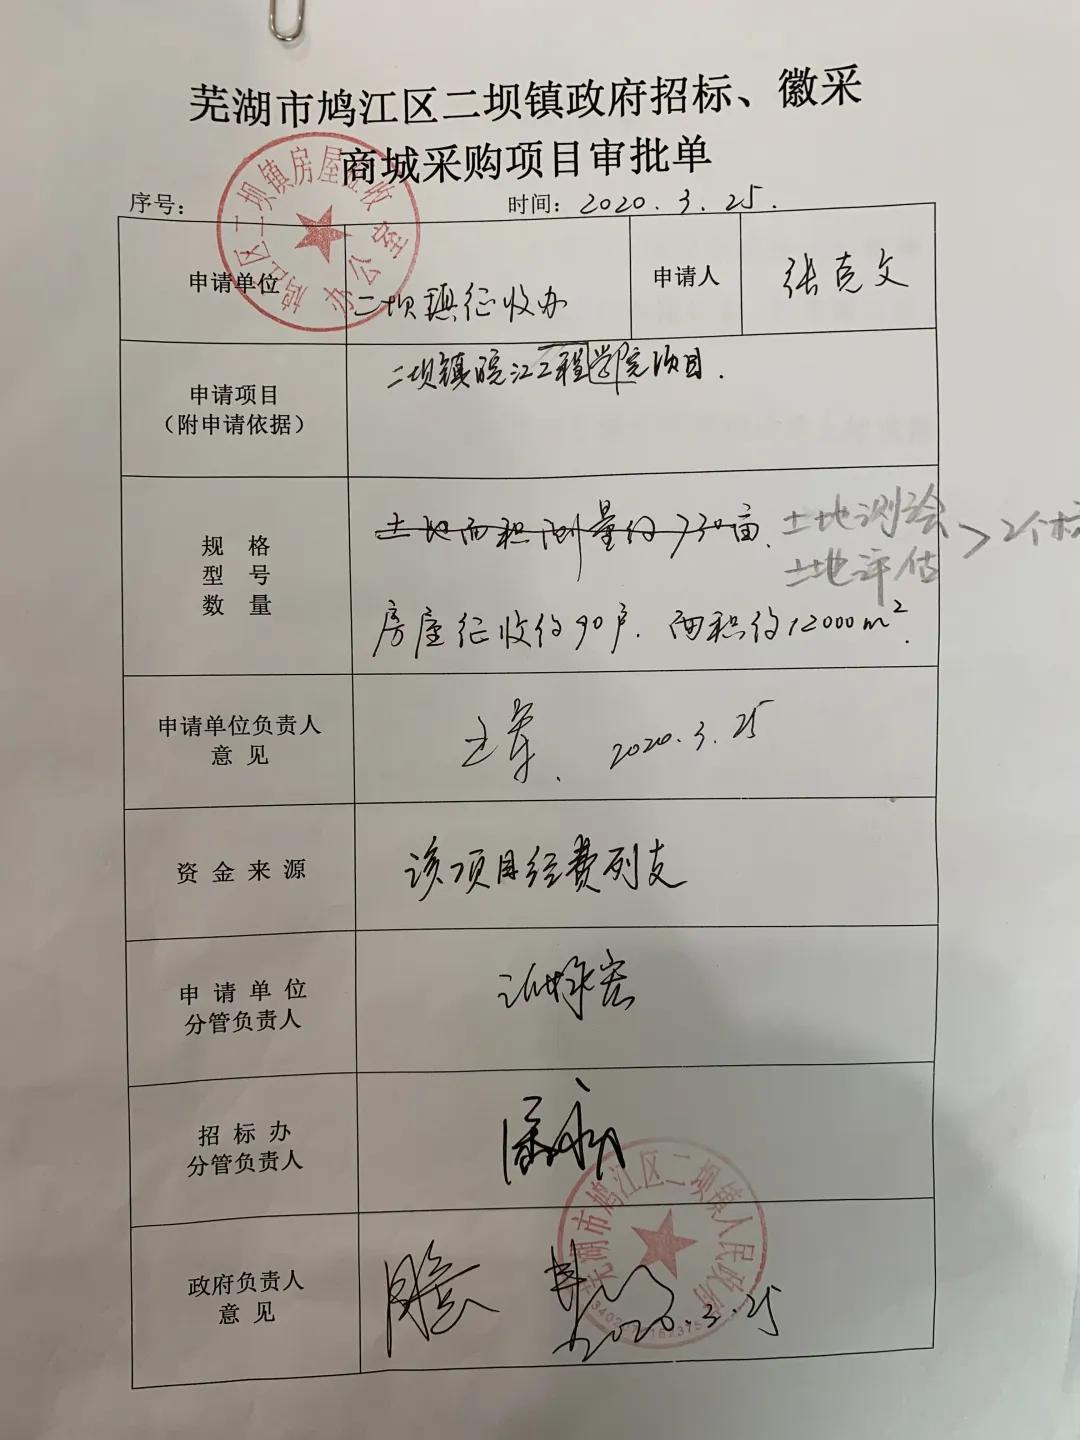 芜湖市鸠江区二坝镇政府招标、徽采
商城采购项目审批单
序号：
时间：2020.3.25.
申请单位
二坝镇征收办
申请人
张克文
鸠江区二坝镇房屋征收办公室
申请项目
（附申请依据）
二坝镇皖江工程学院项目.
规 格
型 号
数 量
土地面积测量约730亩、
土地测绘
土地评估
> 2个标
房屋征收约90户.面积约12000m².
申请单位负责人
意 见
2020.3.25
资 金 来 源
该项目经费列支
申 请 单 位
分管负责人
招 标 办
分管负责人
政府负责人
意 见
2020.3.25
芜湖市鸠江区二坝镇人民政府